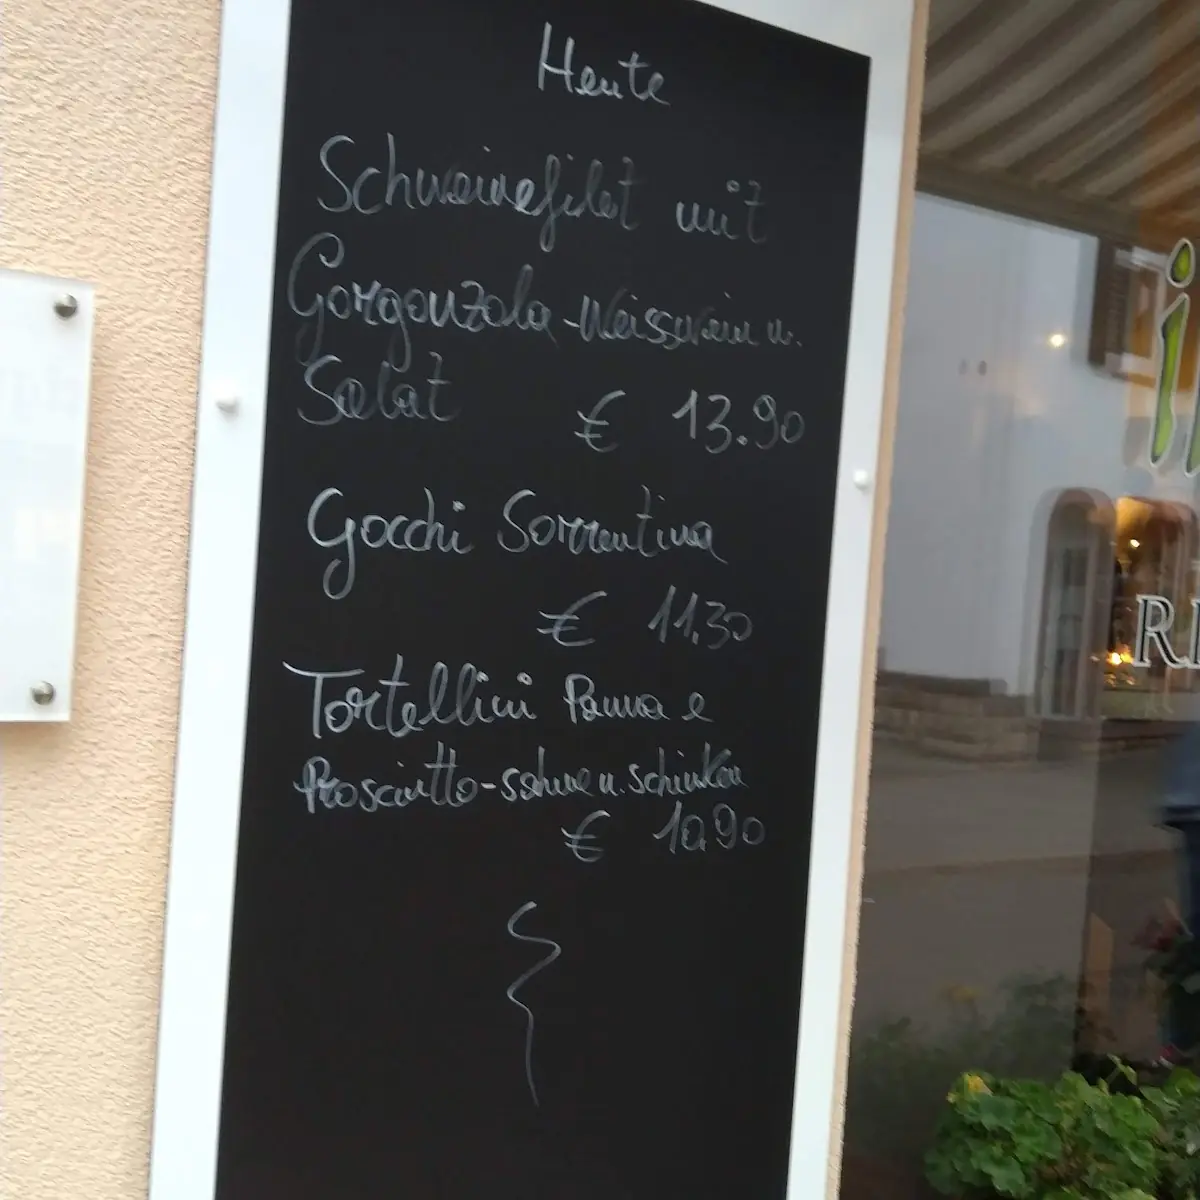 Heute
Schweinefilet mit
Gorgonzola-Weisswein u.
Salat € 13.90
Gocchi Sorrentina
€ 11,30
Tortellini Panna e
Prosciutto-sahne u. schinken
€ 10,90